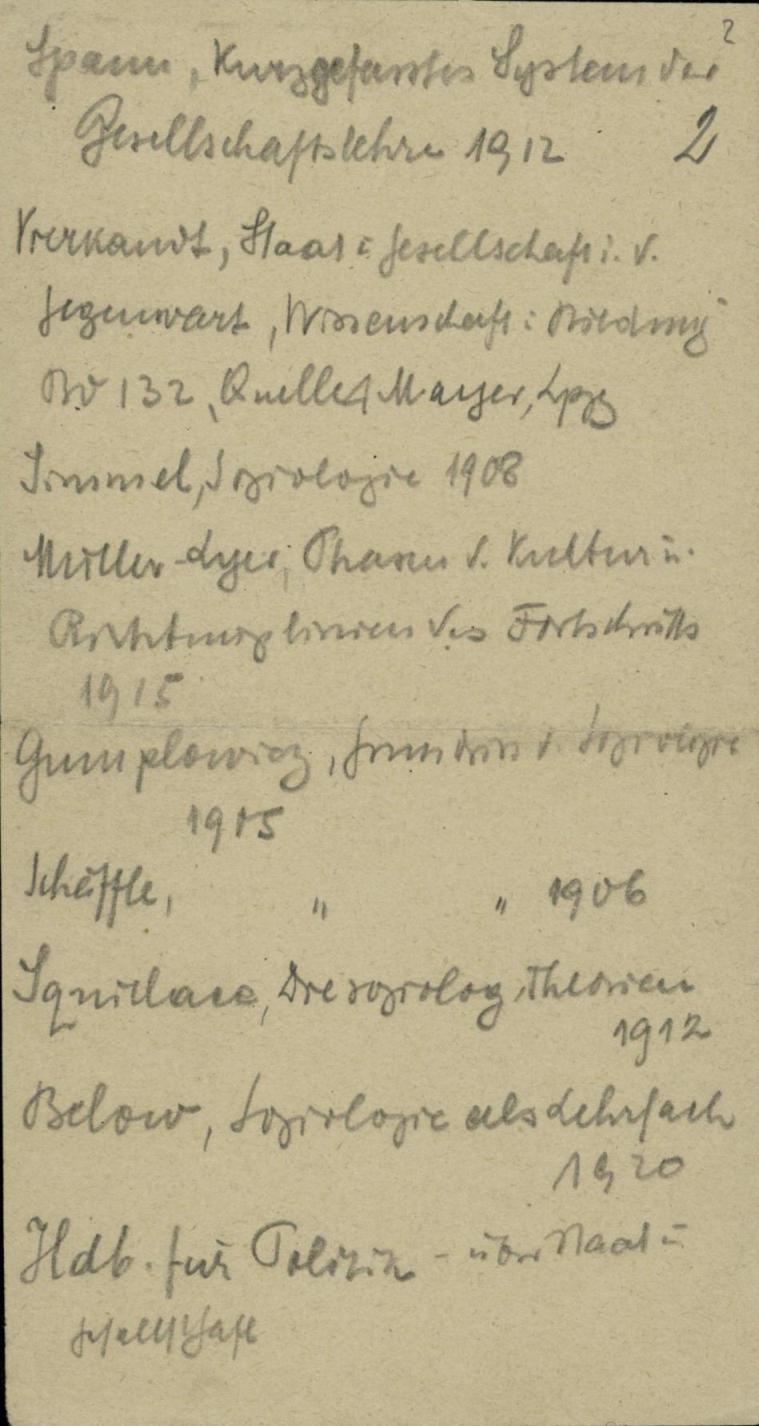 2
Spann, Kurzgefasstes System der
Gesellschaftslehre 1912 2
Vierkandt, Staat u. Gesellschaft i. d.
Gegenwart, Wissenschaft u. Bildung
Bd 132, Quelle & Mayer, Lpzg
Simmel, Soziologie 1908
Müller-Lyer, Phasen d. Kultur u.
Richtungslinien des Fortschritts
1915
Gumplowicz, Grundriss d. Soziologie
1905
Schäffle, " " 1906
Squillace, Die soziolog. Theorien
1912
Below, Soziologie als Lehrfach
1920
Hdb. für Politik - über Staat u.
Gesellschaft